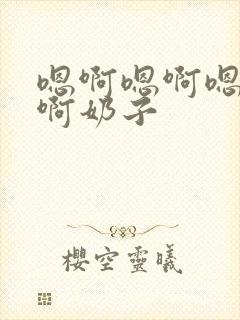 嗯啊嗯啊嗯
啊奶子
樱空靈曦